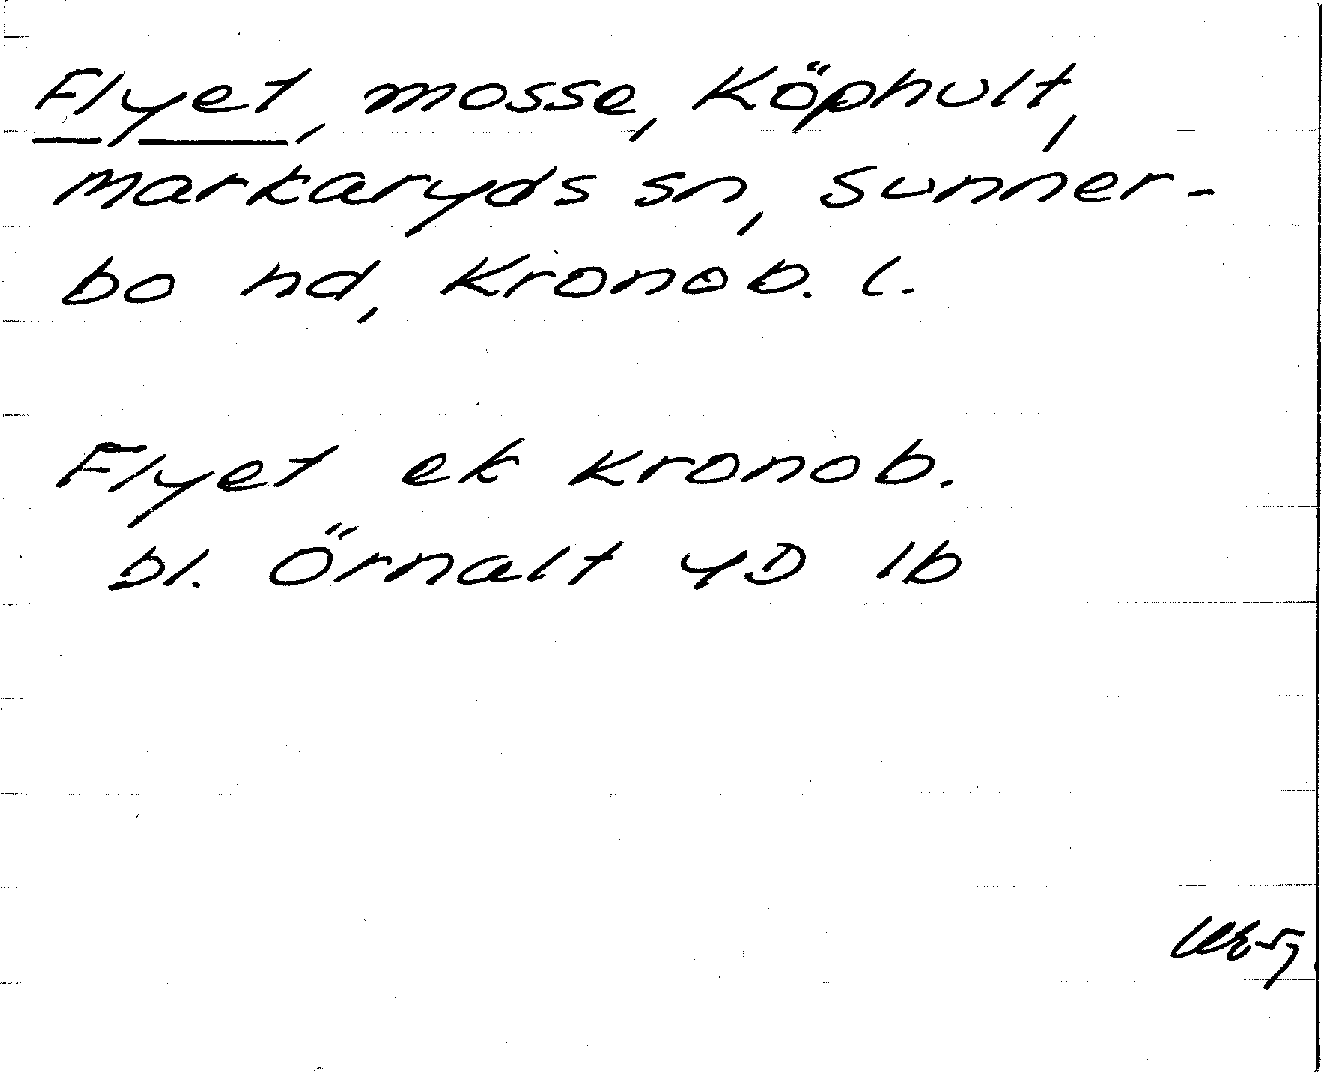 Flyet, mosse, Köphult,
Markaryds sn, Sunner-
bo hd, Kronob. l.
Flyet ek Kronob.
bl. Örnalt 4D 1b